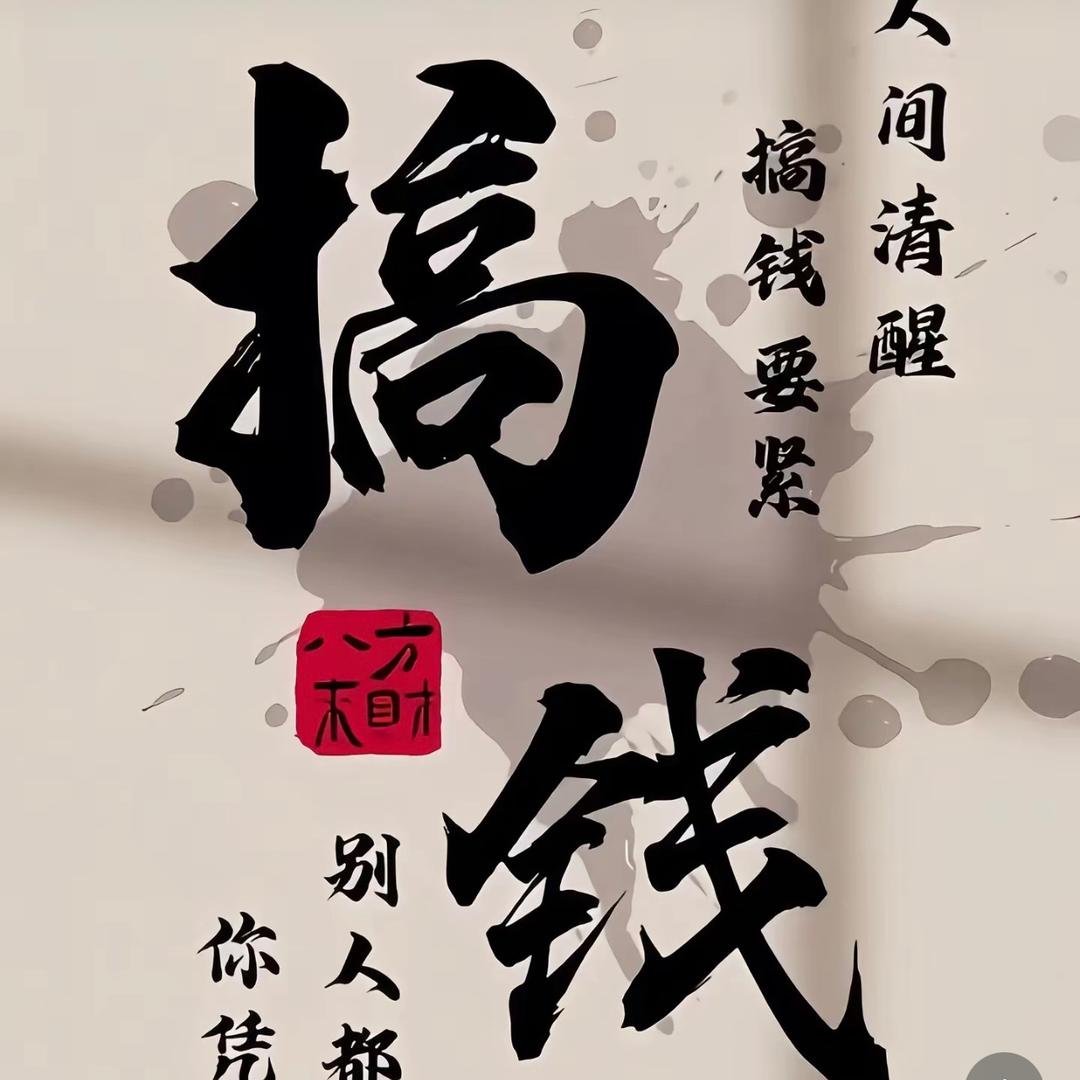 人间清醒
搞钱要紧
搞钱
八方
来财
别人都
你凭